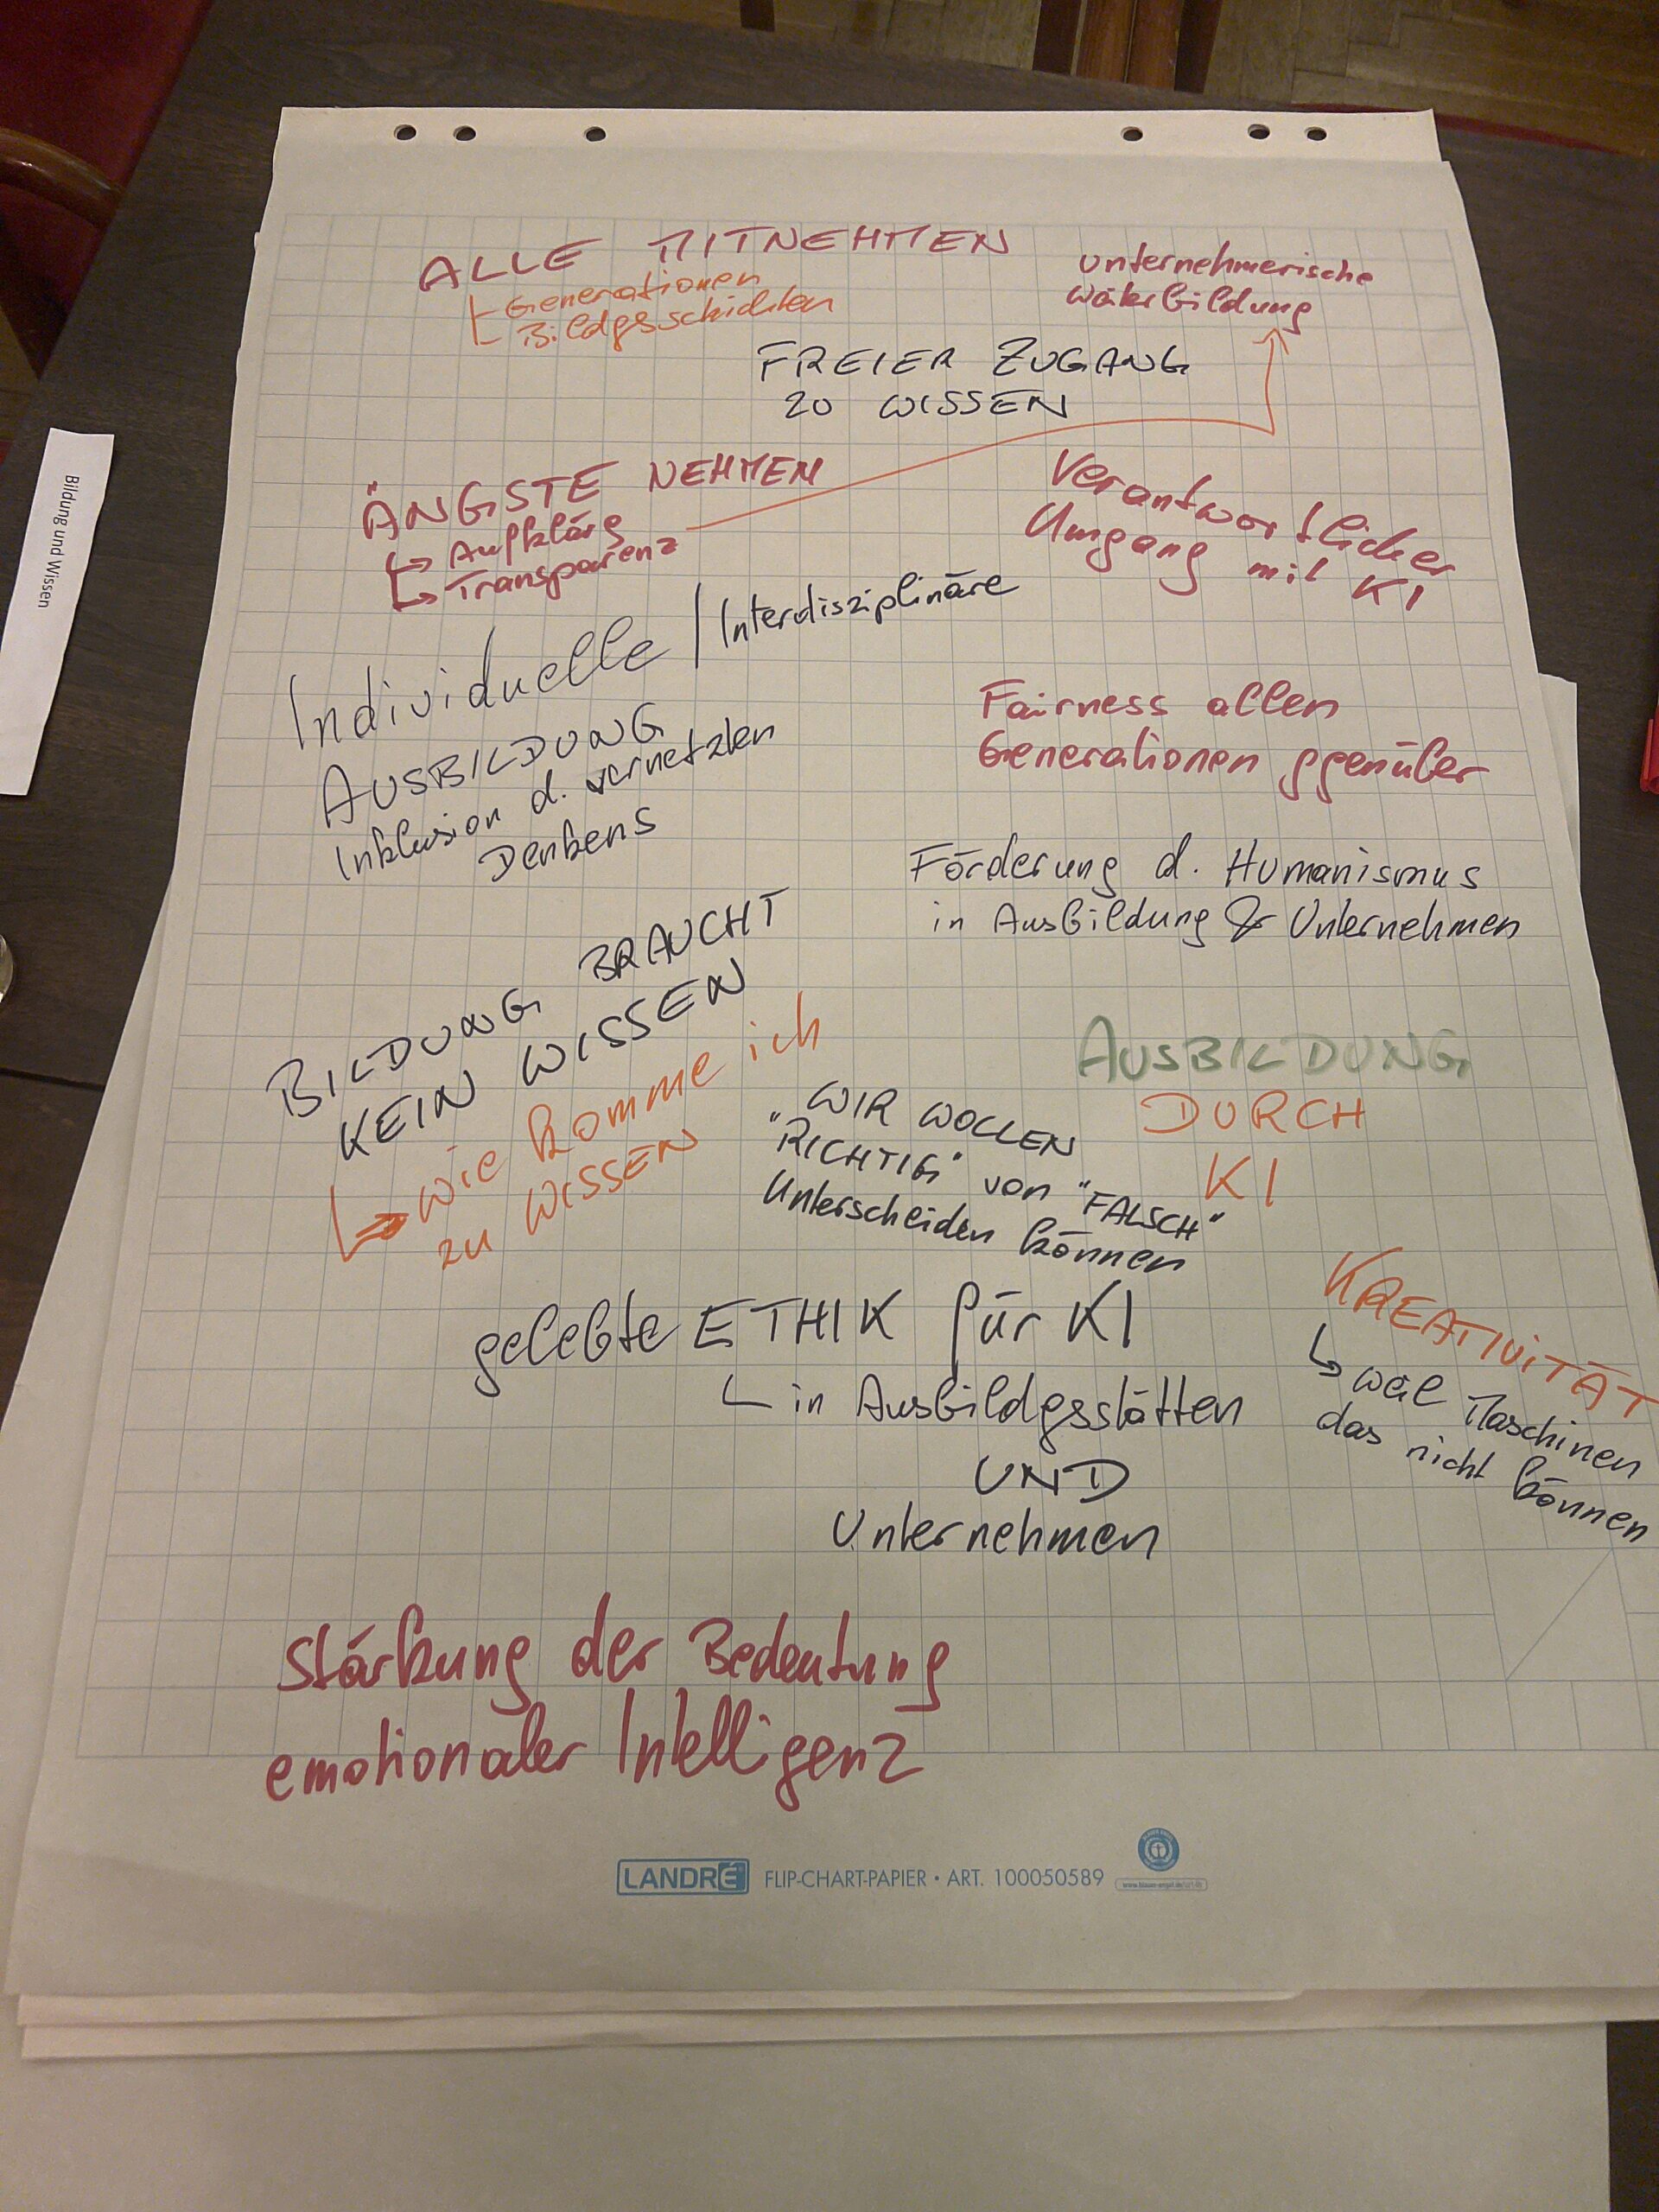 ALLE MITNEHMEN
Generationen
Bildgsschichten
unternehmerische
Weiterbildung
FREIER ZUGANG
ZU WISSEN
ÄNGSTE NEHMEN
Aufklärg
Transparenz
Verantwortlicher
Umgang mit KI
Individuelle / Interdisziplinäre
AUSBILDUNG
Inklusion d. vernetzten
Denkens
Fairness allen
Generationen ggenüber
Förderung d. Humanismus
in Ausbildung & Unternehmen
BILDUNG BRAUCHT
KEIN WISSEN
wie komme ich
zu WISSEN
AUSBILDUNG
DURCH
KI
WIR WOLLEN
"RICHTIG" von "FALSCH"
Unterscheiden können
gelebte ETHIK für KI
in Ausbildgsstätten
UND
Unternehmen
KREATIVITÄT
weil Maschinen
das nicht können
Stärkung der Bedeutung
emotionaler Intelligenz
LANDRÉ FLIP-CHART-PAPIER • ART. 100050589
Bildung und Wissen